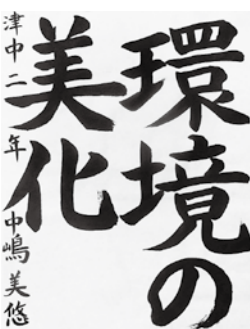 環境の
美化
津中二年 中嶋美悠